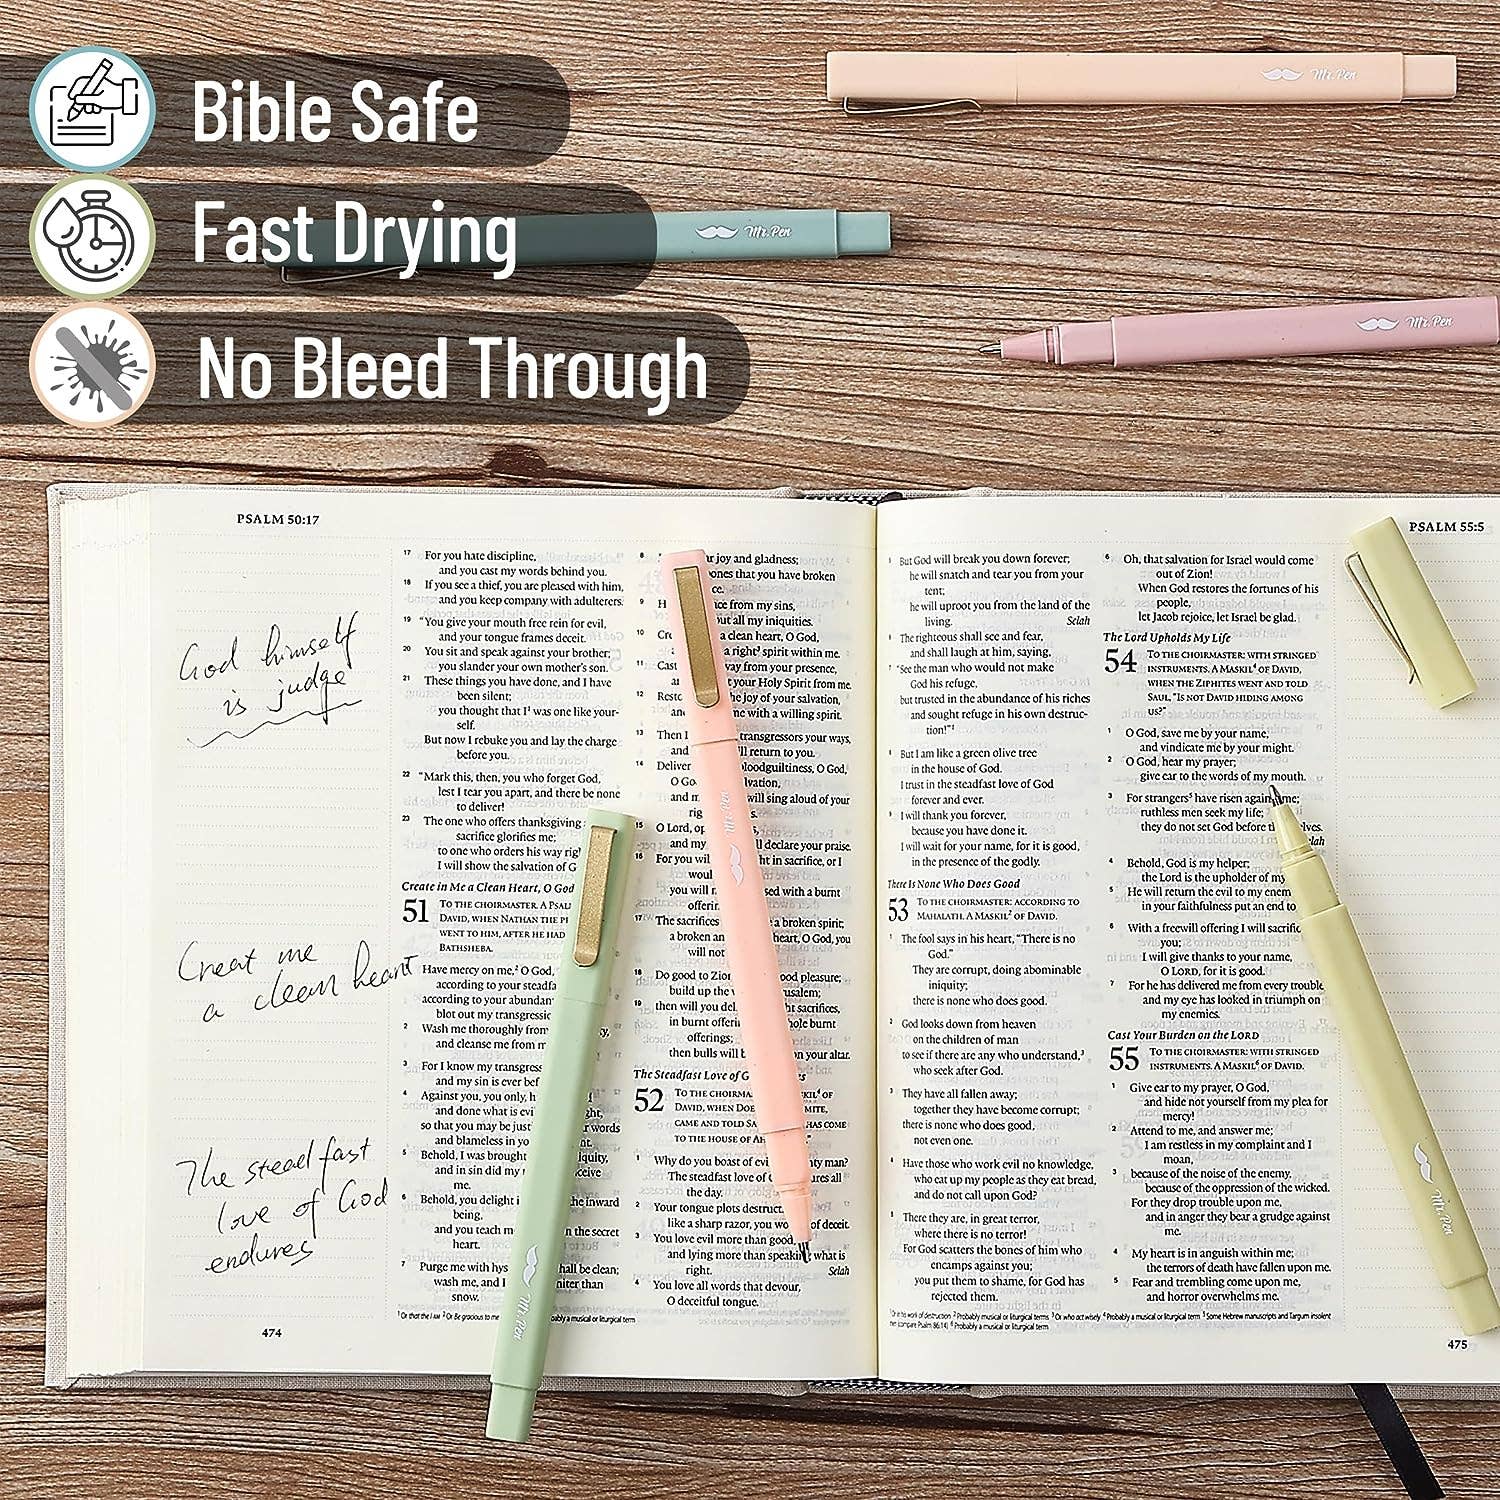 Bible Safe
Fast Drying
No Bleed Through
Mr. Pen
Mr. Pen
Mr. Pen
PSALM 50:17
God himself
is judge
Creat me
a clean heart
The steadfast
love of God
endures
17 For you hate discipline,
and you cast my words behind you.
18 If you see a thief, you are pleased with him,
and you keep company with adulterers.
19 “You give your mouth free rein for evil,
and your tongue frames deceit.
20 You sit and speak against your brother;
you slander your own mother’s son.
21 These things you have done, and I have
been silent;
you thought that I¹ was one like your-
self.
But now I rebuke you and lay the charge
before you.
22 “Mark this, then, you who forget God,
lest I tear you apart, and there be none
to deliver!
23 The one who offers thanksgiving
sacrifice glorifies me;
to one who orders his way
I will show the salvation of
Create in Me a Clean Heart, O God
51 TO THE CHOIRMASTER. A
DAVID, WHEN NATHAN THE
WENT TO HIM, AFTER HE HAD
BATHSHEBA.
Have mercy on me,² O God,
according to your
according to your
blot out my
2 Wash me thoroughly from
and cleanse me from
3 For I know my
and my sin is ever
4 Against you, you only,
and done what is
so that you may be words
and blameless in
5 Behold, I was brought
and in sin did my
me.
6 Behold, you delight inward
being,
and you teach in the secret
heart.
7 Purge me with shall be clean;
wash me, and I than
snow.
¹ Or that I am ² Or Be gracious to me Probably a musical or liturgical term
474
8 joy and gladness;
bones that you have broken
9 from my sins,
out all my iniquities.
10 a clean heart, O God,
a right³ spirit within me.
11 Cast away from your presence,
your Holy Spirit from me.
12 the joy of your salvation,
me with a willing spirit.
13 Then I transgressors your ways,
and will return to you.
14 Deliver bloodguiltiness, O God,
O
and will sing aloud of your
15 O Lord,
and my declare your praise.
16 For you will in sacrifice, or I
you will with a burnt
17 The sacrifices a broken spirit;
a broken heart, O God, you
will not
18 Do good to Zion good pleasure;
build up the
19 then will you sacrifices,
in burnt burnt
offerings;
then bulls will on your altar.
The Steadfast Love of
52 TO THE OF
DAVID, WHEN
CAME AND TOLD HAS COME
TO THE HOUSE OF
1 Why do you boast of man?
The steadfast love of all
the day.
2 Your tongue plots
like a sharp razor, you of deceit.
3 You love evil more than good,
and lying more than what is
right. Selah
4 You love all words that devour,
O deceitful tongue.
Mr. Pen
Mr. Pen
PSALM 55:5
5 But God will break you down forever;
he will snatch and tear you from your
tent;
he will uproot you from the land of the
living. Selah
6 The righteous shall see and fear,
and shall laugh at him, saying,
7 “See the man who would not make
God his refuge,
but trusted in the abundance of his riches
and sought refuge in his own destruc-
tion!”¹
8 But I am like a green olive tree
in the house of God.
I trust in the steadfast love of God
forever and ever.
9 I will thank you forever,
because you have done it.
I will wait for your name, for it is good,
in the presence of the godly.
There Is None Who Does Good
53 TO THE CHOIRMASTER: ACCORDING TO
MAHALATH. A MASKIL² OF DAVID.
1 The fool says in his heart, “There is no
God.”
They are corrupt, doing abominable
iniquity;
there is none who does good.
2 God looks down from heaven
on the children of man
to see if there are any who understand,³
who seek after God.
3 They have all fallen away;
together they have become corrupt;
there is none who does good,
not even one.
4 Have those who work evil no knowledge,
who eat up my people as they eat bread,
and do not call upon God?
5 There they are, in great terror,
where there is no terror!
For God scatters the bones of him who
encamps against you;
you put them to shame, for God has
rejected them.
6 Oh, that salvation for Israel would come
out of Zion!
When God restores the fortunes of his
people,
let Jacob rejoice, let Israel be glad.
The Lord Upholds My Life
54 TO THE CHOIRMASTER: WITH STRINGED
INSTRUMENTS. A MASKIL⁴ OF DAVID,
WHEN THE ZIPHITES WENT AND TOLD
SAUL, “IS NOT DAVID HIDING AMONG
US?”
1 O God, save me by your name,
and vindicate me by your might.
2 O God, hear my prayer;
give ear to the words of my mouth.
3 For strangers⁵ have risen against me;
ruthless men seek my life;
they do not set God before themselves.
Selah
4 Behold, God is my helper;
the Lord is the upholder of my
5 He will return the evil to my
in your faithfulness put an end to
6 With a freewill offering I will sacrifice
you;
I will give thanks to your name,
O LORD, for it is good.
7 For he has delivered me from every trouble,
and my eye has looked in triumph on
my enemies.
Cast Your Burden on the LORD
55 TO THE CHOIRMASTER: WITH STRINGED
INSTRUMENTS. A MASKIL⁶ OF DAVID.
1 Give ear to my prayer, O God,
and hide not yourself from my plea for
mercy!
2 Attend to me, and answer me;
I am restless in my complaint and I
moan,
3 because of the noise of the enemy,
because of the oppression of the wicked.
For they drop trouble upon me,
and in anger they bear a grudge against
me.
4 My heart is in anguish within me;
the terrors of death have fallen upon me.
5 Fear and trembling come upon me,
and horror overwhelms me.
¹ Or in his work of destruction ² Probably a musical or liturgical terms ³ Or who act wisely ⁴ Probably a musical or liturgical term ⁵ Some Hebrew manuscripts and Targum insolent
men (compare Psalm 86:14) ⁶ Probably a musical or liturgical term
475
Mr. Pen